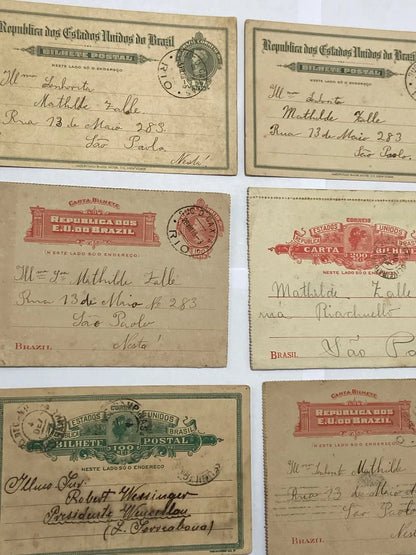 Republica dos Estados Unidos do Brazil
BILHETE POSTAL
NESTE LADO SÓ O ENDEREÇO
RIO
Illma Senhorita
Mathilde Zalle
Rua 13 de Maio 283
São Paulo
Nesta
Republica dos Estados Unidos do Brazil
BILHETE POSTAL
NESTE LADO SÓ O ENDEREÇO
Mathilde Zalle
Rua 13 de Maio 283.
São Paulo.
CARTA BILHETE
REPUBLICA DOS
E.U. DO BRAZIL
(N'ESTE LADO SÓ O ENDEREÇO)
RIO
Mathilde Zalle
Rua 13 de Maio No 283
São Paolo
Nesta
BRAZIL
CORREIO
ESTADOS UNIDOS
REPUBLICA
CARTA 200 BILHETE
NESTE LADO SÓ O ENDEREÇO
Mathilde Zalle
rua Riachuello
BRASIL
São Pa
CORREIO
ESTADOS UNIDOS
BRASIL
BILHETE 100 POSTAL
NESTE LADO SÓ O ENDEREÇO
Illmo Snr.
Robert Wessinger
Presidente Wencesllau
(L. Sorocabana)
CARTA BILHETE
REPUBLICA DOS
E.U. DO BRAZIL
(N'ESTE LADO SÓ O ENDEREÇO)
Mathilde
Rua 13 de Maio
São Paolo
BRAZIL